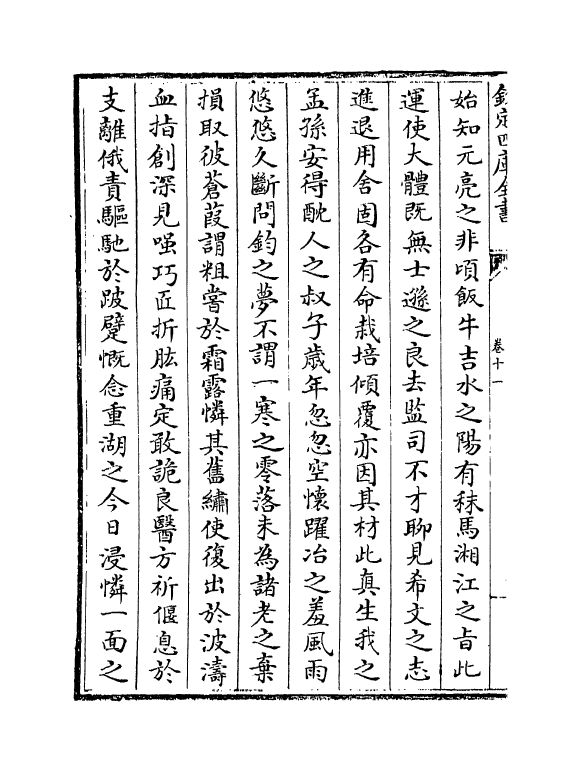 欽定四庫全書
卷十一
始知元亮之非頃飯牛吉水之陽有秣馬湘江之㫖此
運使大體既無士遜之良去監司不才聊見希文之志
進退用舍固各有命栽培傾覆亦因其材此真生我之
孟孫安得酖人之叔子歲年忽忽空懷躍冶之羞風雨
悠悠久斷問鈞之夢不謂一寒之零落未為諸老之棄
損取彼蒼葭謂粗嘗於霜露憐其舊繡使復出於波濤
血指創深見嗤巧匠折肱痛定敢詭良醫方祈偃息於
支離俄責驅馳於跛躄慨念重湖之今日浸憐一面之